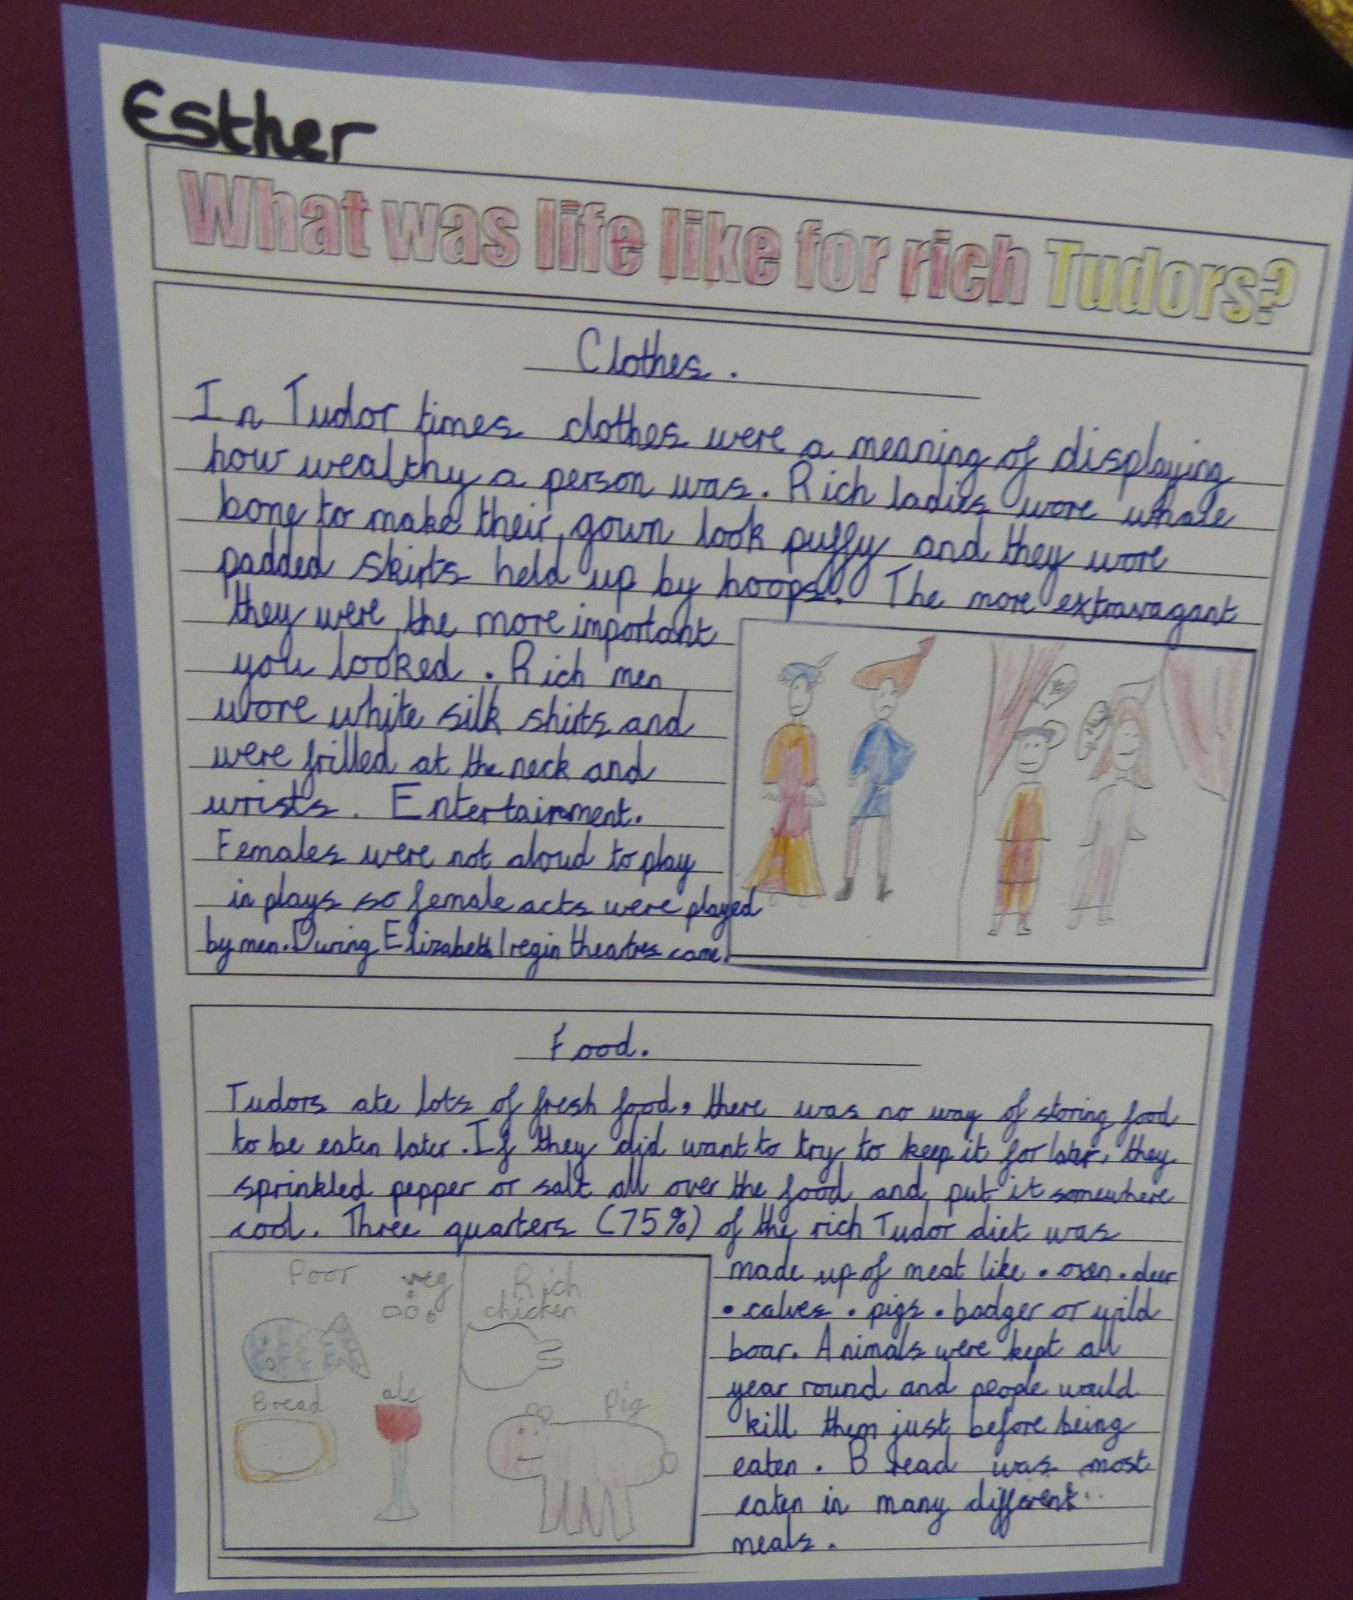 Esther
What was life like for rich Tudors?
Clothes.
In Tudor times clothes were a meaning of displaying
how wealthy a person was. Rich ladies wore whale
bone to make their gown look puffy and they wore
padded skirts held up by hoops. The more extravagant
they were the more important
you looked. Rich men
wore white silk shirts and
were frilled at the neck and
wrists. Entertainment.
Females were not aloud to play
in plays so female acts were played
by men. During Elizabeth I regin theatres came.
Food.
Tudors ate lots of fresh food, there was no way of storing food
to be eaten later. If they did want to try to keep it for later, they
sprinkled pepper or salt all over the food and put it somewhere
cool. Three quarters (75%) of the rich Tudor diet was
made up of meat like • oxen • deer
• calves • pigs • badger or wild
boar. Animals were kept all
year round and people would
kill them just before being
eaten. Bread was most
eaten in many different
meals.
Poor
veg
Bread
ale
Rich
chicken
Pig